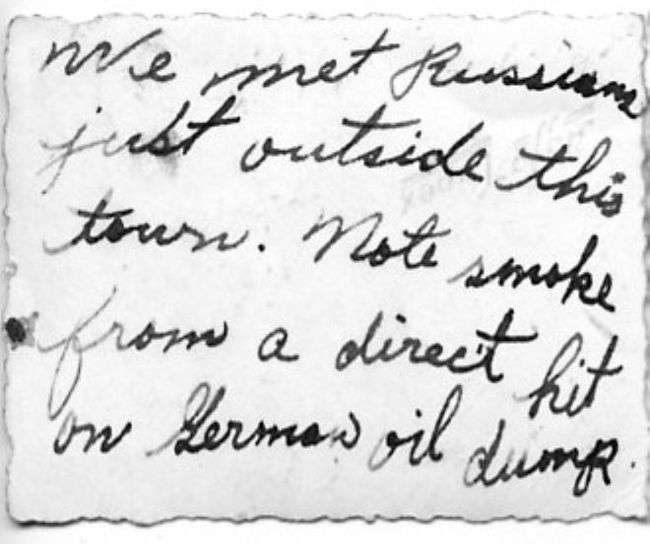 We met Russians
just outside this
town. Note smoke
from a direct hit
on German oil dump.